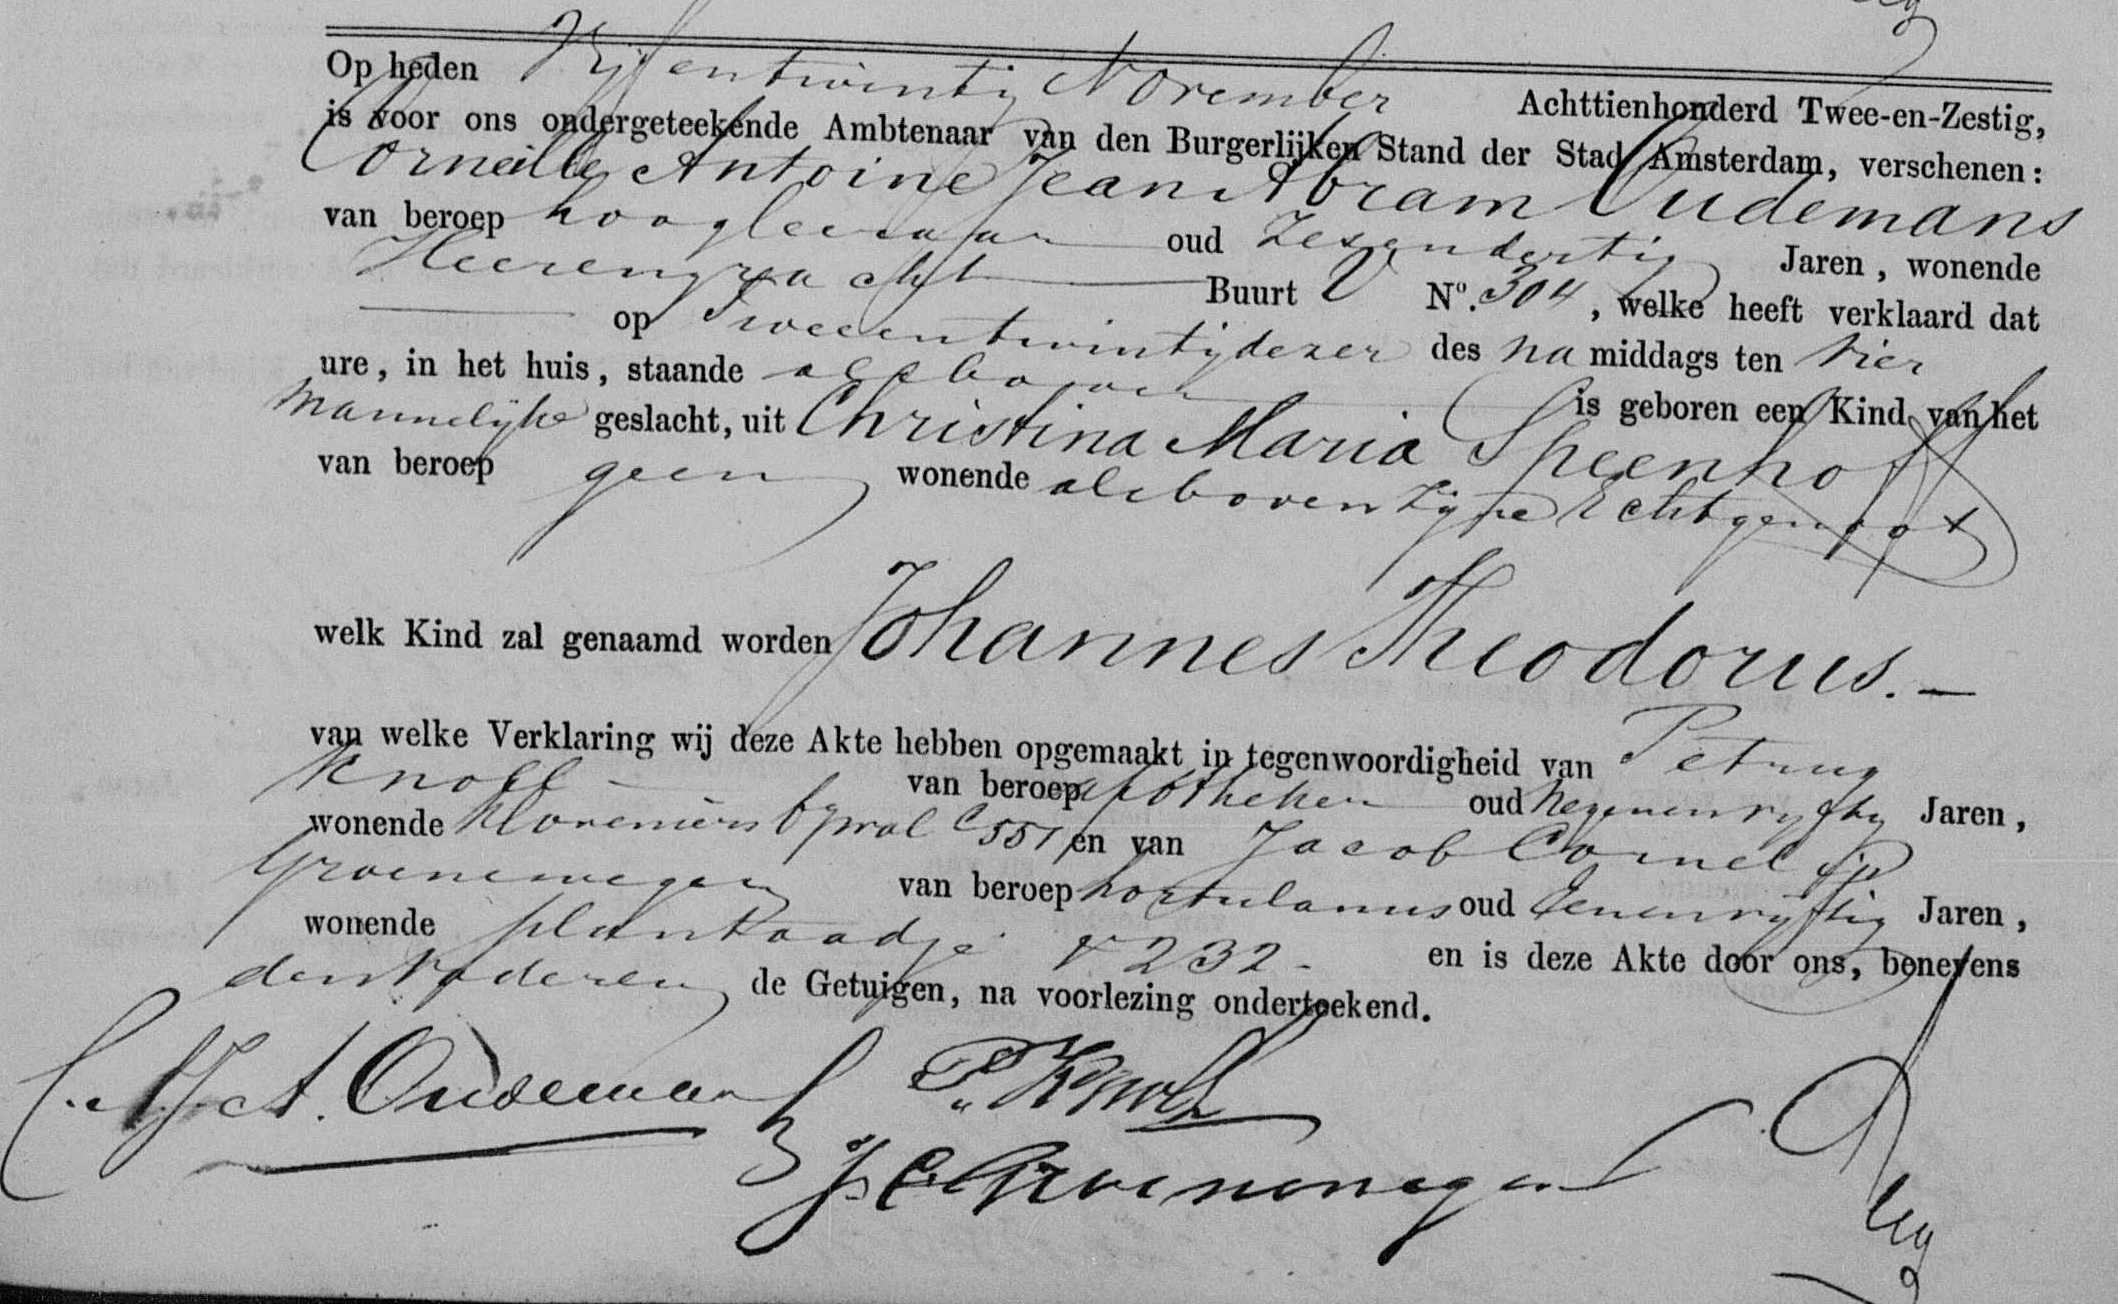 Op heden Vijf en twintig November Achttienhonderd Twee-en-Zestig,
is voor ons ondergeteekende Ambtenaar van den Burgerlijken Stand der Stad Amsterdam, verschenen:
Corneille Antoine Jean Abram Oudemans
van beroep hoogleeraar oud Zesendertig Jaren, wonende
Heerengracht Buurt V No. 304, welke heeft verklaard dat
op Tweeentwintig dezer des na middags ten vier
ure, in het huis, staande als boven is geboren een Kind van het
Mannelijke geslacht, uit Christina Maria Speenhoff
van beroep geen wonende als boven zijne Echtgenoot
welk Kind zal genaamd worden Johannes Theodorus. —
van welke Verklaring wij deze Akte hebben opgemaakt in tegenwoordigheid van Petrus
Knoll van beroep apotheker oud Negenenvyftig Jaren,
wonende Kloveniers Bgwal C 551, en van Jacob Cornelis
Groenewegen van beroep hortulanus oud Eenenvijftig Jaren,
wonende plantaadje V 232 - en is deze Akte door ons, benevens
den Vader en de Getuigen, na voorlezing onderteekend.
C.A.J.A. Oudemans P. Knoll
J. C. Groenewegen